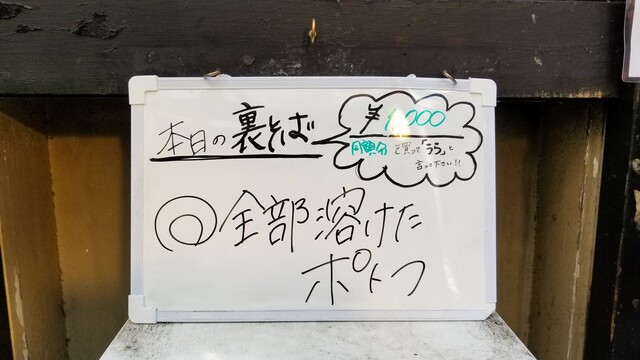 本日の裏そば
¥1,000
円食券を買って「うら」と
言って下さい!!
◎全部溶けた
ポトフ